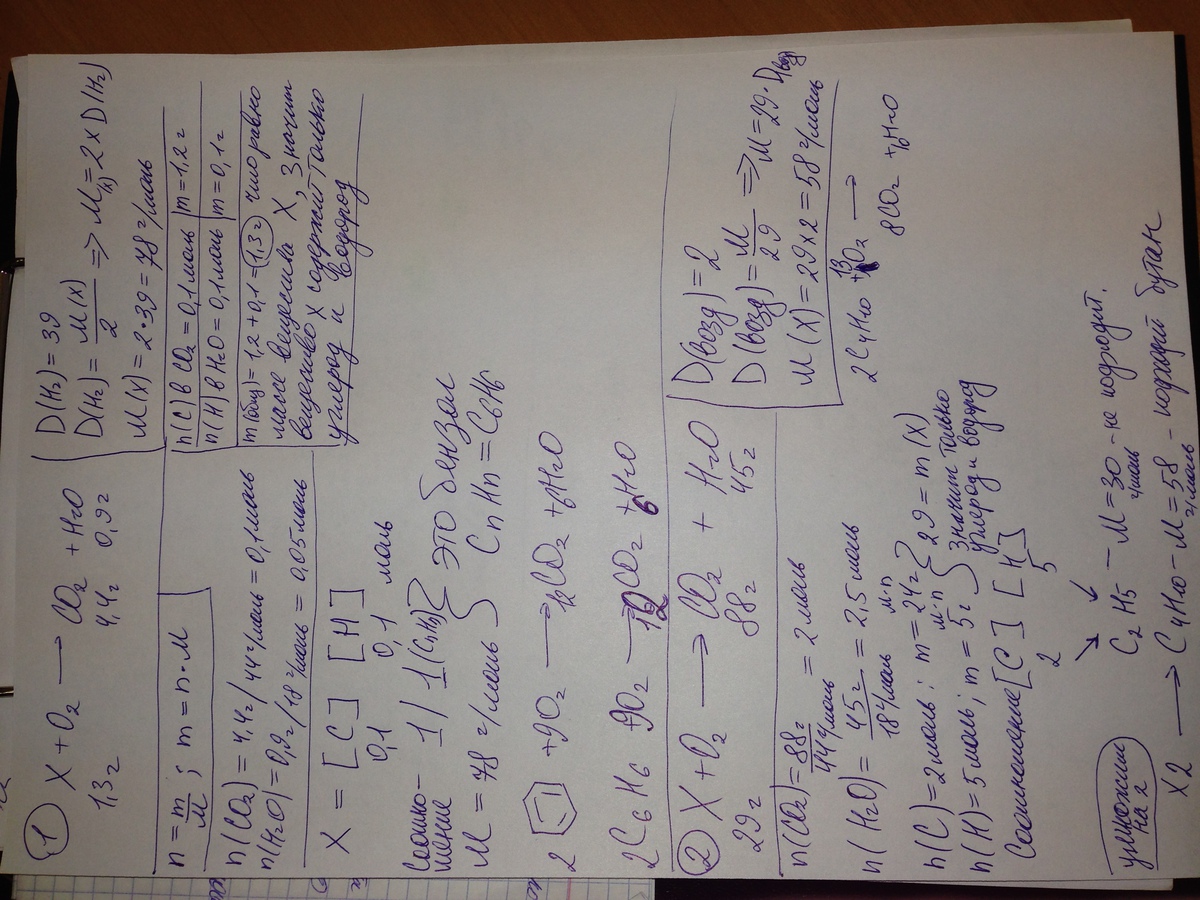 ① X + O₂ → CO₂ + H₂O
1,3г 4,4г 0,9г
D(H₂) = 39
D(H₂) = M(X)/2 => M(X) = 2 x D(H₂)
M(X) = 2·39 = 78 г/моль
n = m/M ; m = n·M
n(CO₂) = 4,4г/44г/моль = 0,1моль
n(H₂O) = 0,9г/18г/моль = 0,05моль
n(C) в CO₂ = 0,1моль m = 1,2г
n(H) в H₂O = 0,1моль m = 0,1г
m(общ) = 1,2 + 0,1 = 1,3г что равно
массе вещества X, значит
вещество X содержит только
углерод и водород
X = [C] [H]
0,1 0,1 моль
Соотно-
шение 1/1 (CnHn)
M = 78 г/моль } это бензол
CnHn = C₆H₆
2 + 9O₂ → 12CO₂ + 6H₂O
2C₆H₆ + 9O₂ → 12CO₂ + 6H₂O
② X + O₂ → CO₂ + H₂O
29г 88г 45г
D(возд) = 2
D(возд) = M/29 => M = 29·Dвозд
M(X) = 29 x 2 = 58 г/моль
n(CO₂) = 88г/44г/моль = 2моль
n(H₂O) = 45г/18г/моль = 2,5моль
2C₄H₁₀ + 13O₂ →
8CO₂ + 10H₂O
n(C) = 2моль; m = 24г
M·n M·n
n(H) = 5моль; m = 5г } 29 = m(X)
значит только
углерод и водород
Соотношение [C] [H]
2 5
C₂H₅ – M = 30 г/моль – не подходит.
умножим
на 2
X2 → C₄H₁₀ – M = 58 г/моль – подходит бутан